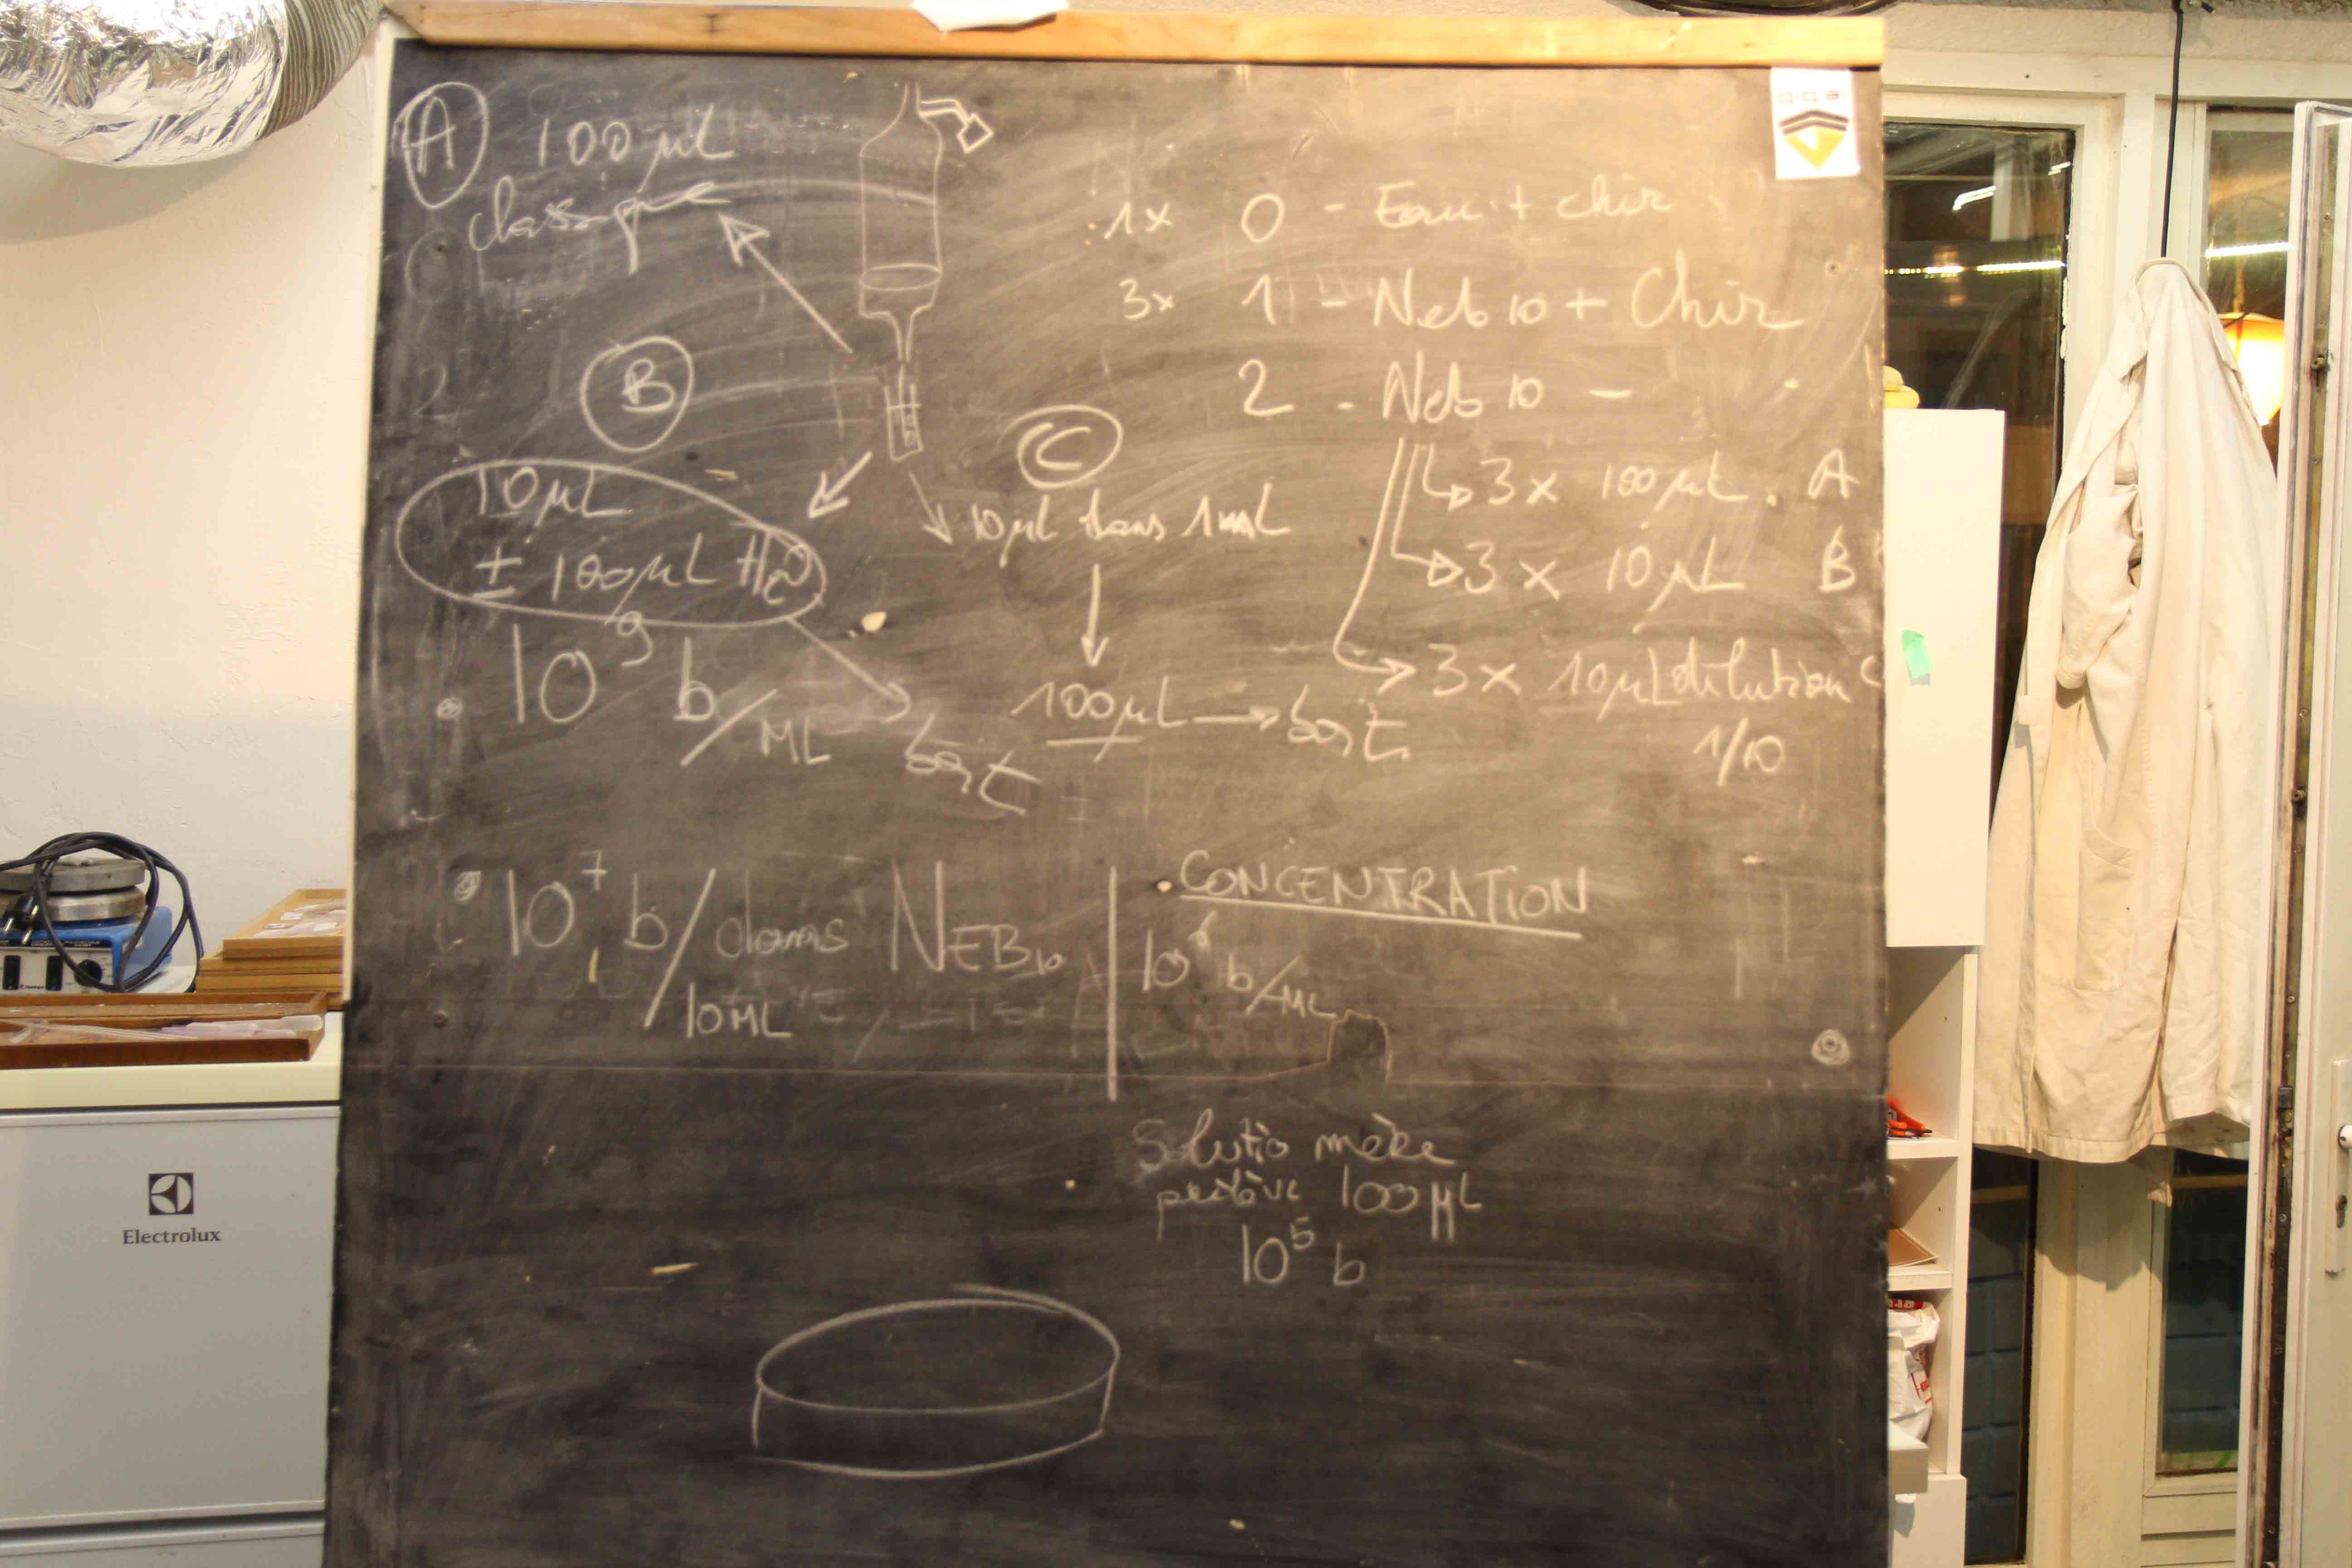 A 100 µL
classique
B
10 µL
± 100 µL H2O
10⁹ b/ML
boîte
C
10 µL dans 1 mL
100 µL → boîte
1x 0 - Eau + chir
3x 1 - Neb 10 + Chir
2 - Neb 10 -
3 x 100 µL A
3 x 10 µL B
3 x 10 µL dilution C
1/10
10⁷ b/10 ML dans NEB10
CONCENTRATION
10⁶ b/ML
Solutio mère
prélève 100 µL
10⁵ b
Electrolux